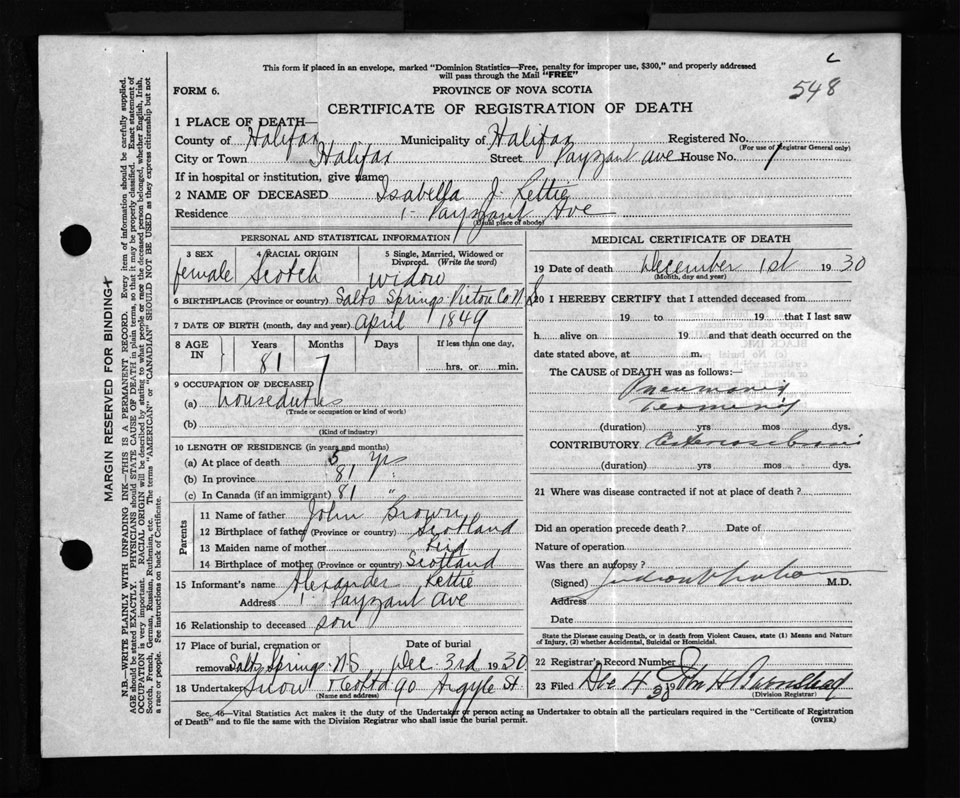 This form if placed in an envelope, marked "Dominion Statistics—Free, penalty for improper use, $300," and properly addressed
will pass through the Mail "FREE"
c
548
FORM 6.
PROVINCE OF NOVA SCOTIA
CERTIFICATE OF REGISTRATION OF DEATH
1 PLACE OF DEATH—
County of Halifax Municipality of Halifax Registered No.
(For use of Registrar General only)
City or Town Halifax Street Payzant Ave House No. 1
If in hospital or institution, give name
2 NAME OF DECEASED Isabella J. Rettie
Residence 1 Payzant Ave
(Usual place of abode)
PERSONAL AND STATISTICAL INFORMATION
3 SEX 4 RACIAL ORIGIN 5 Single, Married, Widowed or Divorced. (Write the word)
female Scotch widow
6 BIRTHPLACE (Province or country) Salts Springs Pictou Co N.S
7 DATE OF BIRTH (month, day and year) April 1849
8 AGE IN Years Months Days If less than one day,
81 7 hrs. or min.
9 OCCUPATION OF DECEASED
(a) houseduties
(Trade or occupation or kind of work)
(b)
(Kind of industry)
10 LENGTH OF RESIDENCE (in years and months)
(a) At place of death 5 yrs
(b) In province 81 "
(c) In Canada (if an immigrant) 81 "
Parents
11 Name of father John Brown
12 Birthplace of father (Province or country) Scotland
13 Maiden name of mother Reid
14 Birthplace of mother (Province or country) Scotland
15 Informant's name Alexander Rettie
Address 1 Payzant Ave
16 Relationship to deceased son
17 Place of burial, cremation or removal Salt Springs N.S Date of burial Dec 3rd 1930
18 Undertaker Snow & Co Ltd 90 Argyle St
(Name and address)
MEDICAL CERTIFICATE OF DEATH
19 Date of death December 1st 1930
(Month, day and year)
20 I HEREBY CERTIFY that I attended deceased from
19 to 19 that I last saw
h alive on 19 and that death occurred on the
date stated above, at m.
The CAUSE of DEATH was as follows:—
Pneumonia
(duration) yrs mos dys.
CONTRIBUTORY
(duration) yrs mos dys.
21 Where was disease contracted if not at place of death?
Did an operation precede death? Date of
Nature of operation
Was there an autopsy?
(Signed) M.D.
Address
Date
State the Disease causing Death, or in death from Violent Causes, state (1) Means and Nature
of Injury, (2) whether Accidental, Suicidal or Homicidal.
22 Registrar's Record Number
23 Filed Dec 4 1930 John H Barnstead
(Division Registrar)
Sec. 46—Vital Statistics Act makes it the duty of the Undertaker or person acting as Undertaker to obtain all the particulars required in the "Certificate of Registration
of Death" and to file the same with the Division Registrar who shall issue the burial permit.
(OVER)
MARGIN RESERVED FOR BINDING
N.B.—WRITE PLAINLY WITH UNFADING INK—THIS IS A PERMANENT RECORD. Every item of information should be carefully supplied.
AGE should be stated EXACTLY. PHYSICIANS should STATE CAUSE OF DEATH in plain terms, so that it may be properly classified. Exact statement of
OCCUPATION is very important. RACIAL ORIGIN will be described by stating to what people or race the deceased person belonged, whether English, Irish,
Scotch, French, German, Russian, Ruthenian, etc. The terms "AMERICAN" or "CANADIAN" SHOULD NOT BE USED as they express citizenship but not
a race or people. See instructions on back of Certificate.